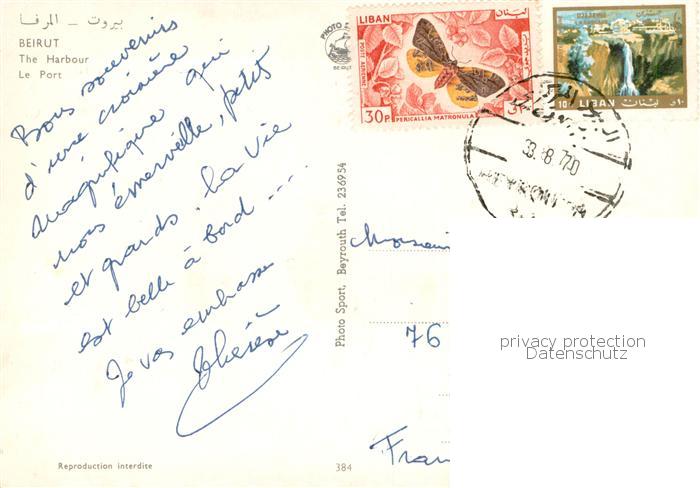 بيروت - المرفا
BEIRUT
The Harbour
Le Port
Bons souvenirs
d'une croisière
magnifique qui
nous émerveille, petits
et grands. La vie
est belle à bord ....
Je vous embrasse
Thérèse
Reproduction interdite
384
Photo Sport, Beyrouth Tel. 236954
PHOTO
BEIRUT
LIBAN
لبنان
POSTE AERIENNE
30P
PERICALLIA MATRONULA
DJEZZINE
10P LIBAN لبنان
Monsieur
76
Fran
privacy protection
Datenschutz